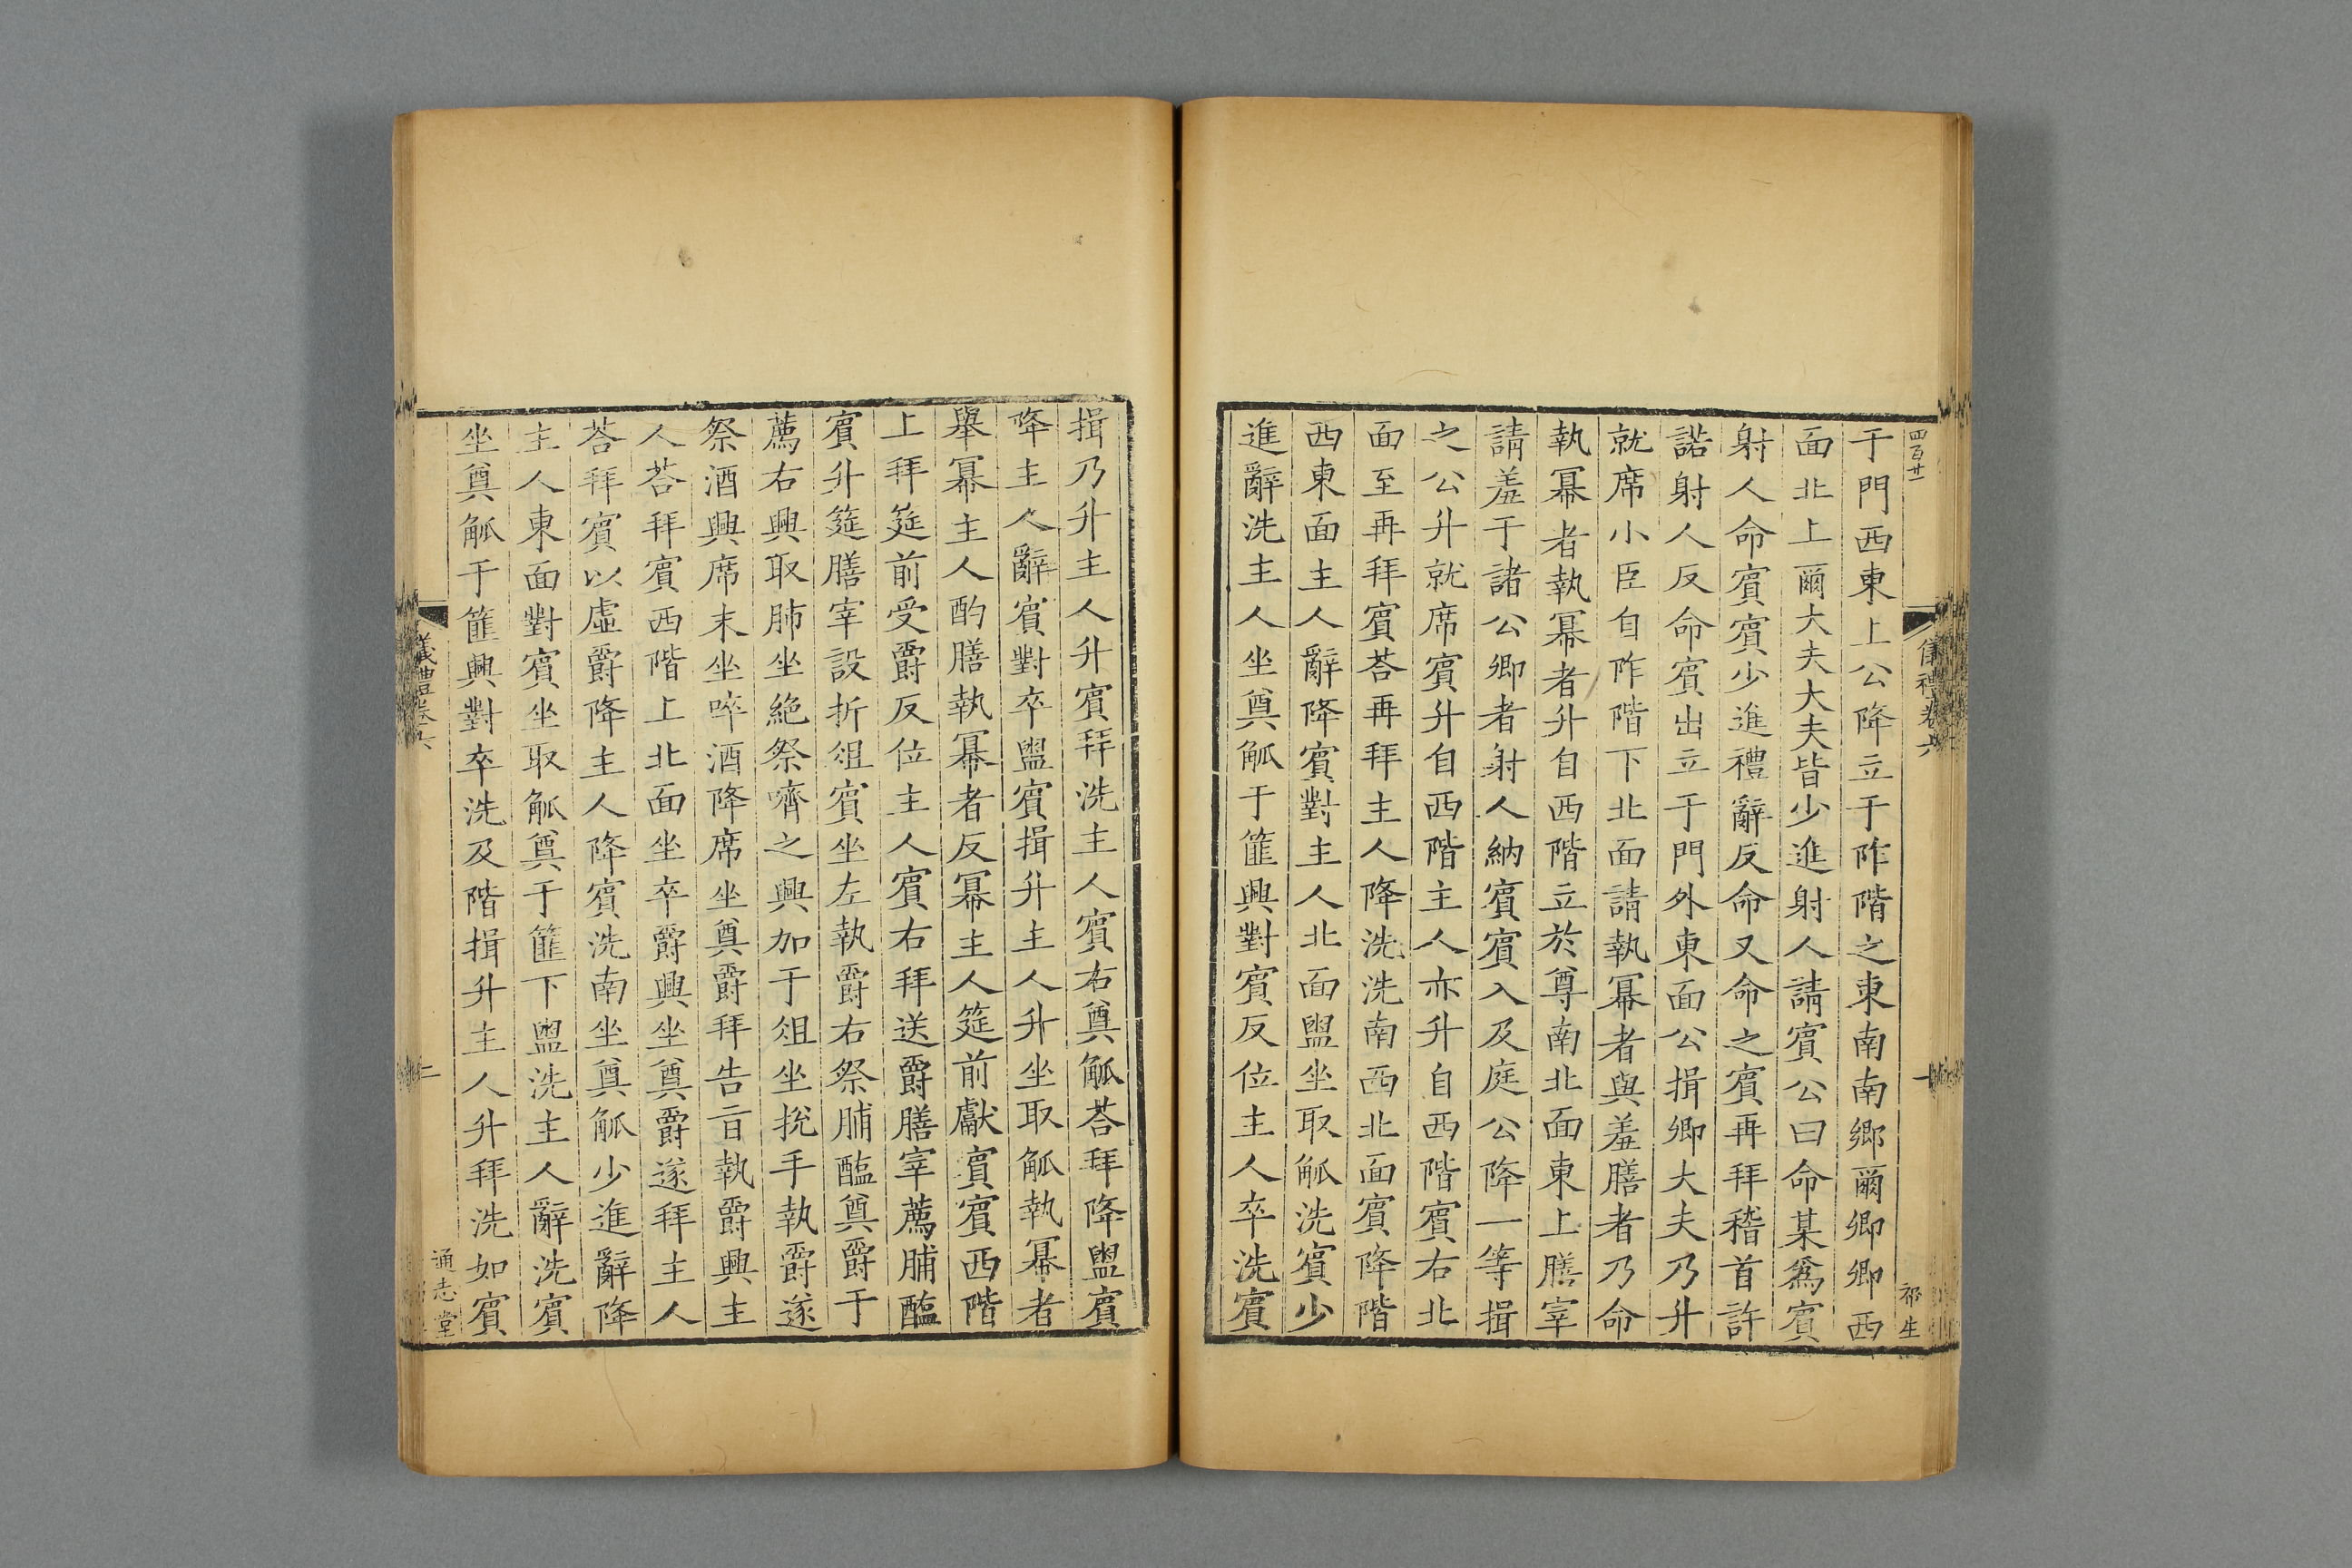 四百廿一
儀禮卷六
一
祁生
于門西東上公降立于阼階之東南南鄉爾卿卿西
面北上爾大夫大夫皆少進射人請賓公曰命某爲賓
射人命賓賓少進禮辭反命又命之賓再拜稽首許
諾射人反命賓出立于門外東面公揖卿大夫乃升
就席小臣自阼階下北面請執冪者與羞膳者乃命
執冪者執冪者升自西階立於尊南北面東上膳宰
請羞于諸公卿者射人納賓賓入及庭公降一等揖
之公升就席賓升自西階主人亦升自西階賓右北
面至再拜賓荅再拜主人降洗洗南西北面賓降階
西東面主人辭降賓對主人北面盥坐取觚洗賓少
進辭洗主人坐奠觚于篚興對賓反位主人卒洗賓
揖乃升主人升賓拜洗主人賓右奠觚荅拜降盥賓
降主人辭賓對卒盥賓揖升主人升坐取觚執冪者
舉冪主人酌膳執冪者反冪主人筵前獻賓賓西階
上拜筵前受爵反位主人賓右拜送爵膳宰薦脯醢
賓升筵膳宰設折俎賓坐左執爵右祭脯醢奠爵于
薦右興取肺坐絕祭嚌之興加于俎坐挩手執爵遂
祭酒興席末坐啐酒降席坐奠爵拜告旨執爵興主
人荅拜賓西階上北面坐卒爵興坐奠爵遂拜主人
荅拜賓以虛爵降主人降賓洗南坐奠觚少進辭降
主人東面對賓坐取觚奠于篚下盥洗主人辭洗賓
坐奠觚于篚興對卒洗及階揖升主人升拜洗如賓
儀禮卷六
二
通志堂